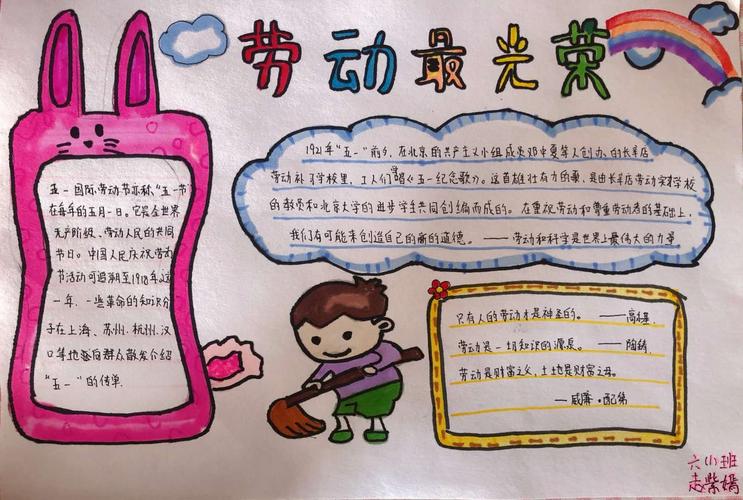 劳动最光荣
五一国际劳动节亦称"五一节"
在每年的五月一日。它是全世界
无产阶级、劳动人民的共同
节日。中国人民庆祝劳动
节活动可追溯至1918年这
一年,一些革命的知识分
子在上海、苏州、杭州、汉
口等地 向群众散发介绍
"五一"的传单.
1921年"五一"前夕,在北京的共产主义小组成员邓中夏等人创办的长辛店
劳动补习学校里,工人们唱《五一纪念歌》。这首雄壮有力的歌,是由长辛店劳动实习学校
的教员和北京大学的进步学生共同创编而成的。在重视劳动和尊重劳动者的基础上,
我们有可能来创造自己的新的道德。——劳动和科学是世界上最伟大的力量
只有人的劳动才是神圣的。——高尔基
劳动是一切知识的源泉。——陶铸
劳动是财富之父,土地是财富之母。
——威廉·配第
六(1)班